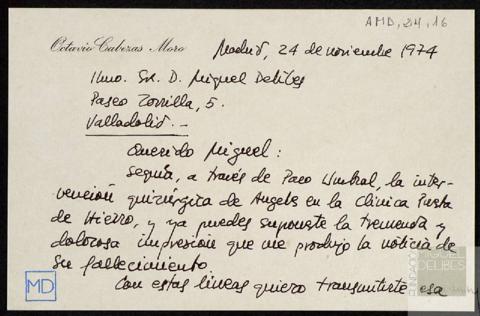 AMD, 24, 16
Octavio Cabezas Moro
Madrid, 24 de noviembre 1974
Ilmo. Sr. D. Miguel Delibes
Paseo Zorrilla, 5.
Valladolid.-
Querido Miguel:
Seguía, a través de Paco Umbral, la inter-
vención quirúrgica de Angeles en la Clínica Puerta
de Hierro, y ya puedes suponerte la tremenda y
dolorosa impresión que me produjo la noticia de
su fallecimiento.
Con estas líneas quiero transmitirte esa
MD
FUNDACIÓN
MIGUEL
DELIBES